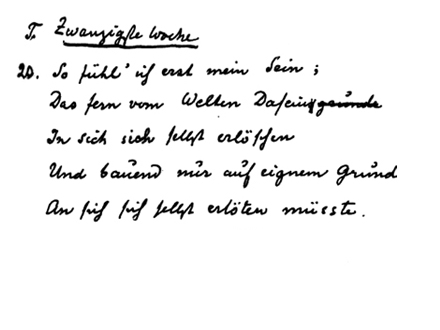 T. Zwanzigste Woche
20. So fühl' ich erst mein Sein;
Das fern vom Welten Dasein
In sich sich selbst erlöschen
Und bauend nur auf eignem Grund
An sich sich selbst ertöten müsste.